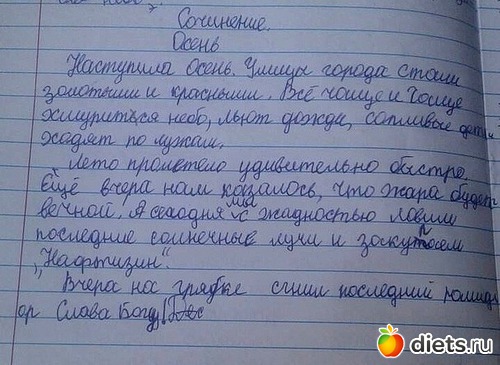 Сочинение.
Осень
Наступила Осень. Улицы города стали
золотыми и красными. Всё чаще и чаще
хмуриться небо, льют дожди, сопливые дети
ходят по лужам.
Лето пролетело удивительно быстро.
Ещё вчера нам казалось, что жара будет
вечной. А сегодня мы с жадностью ловим
последние солнечные лучи и закупаем
„Нафтизин".
Вчера на грядке сгнил последний помид
ор Слава Богу!
diets.ru